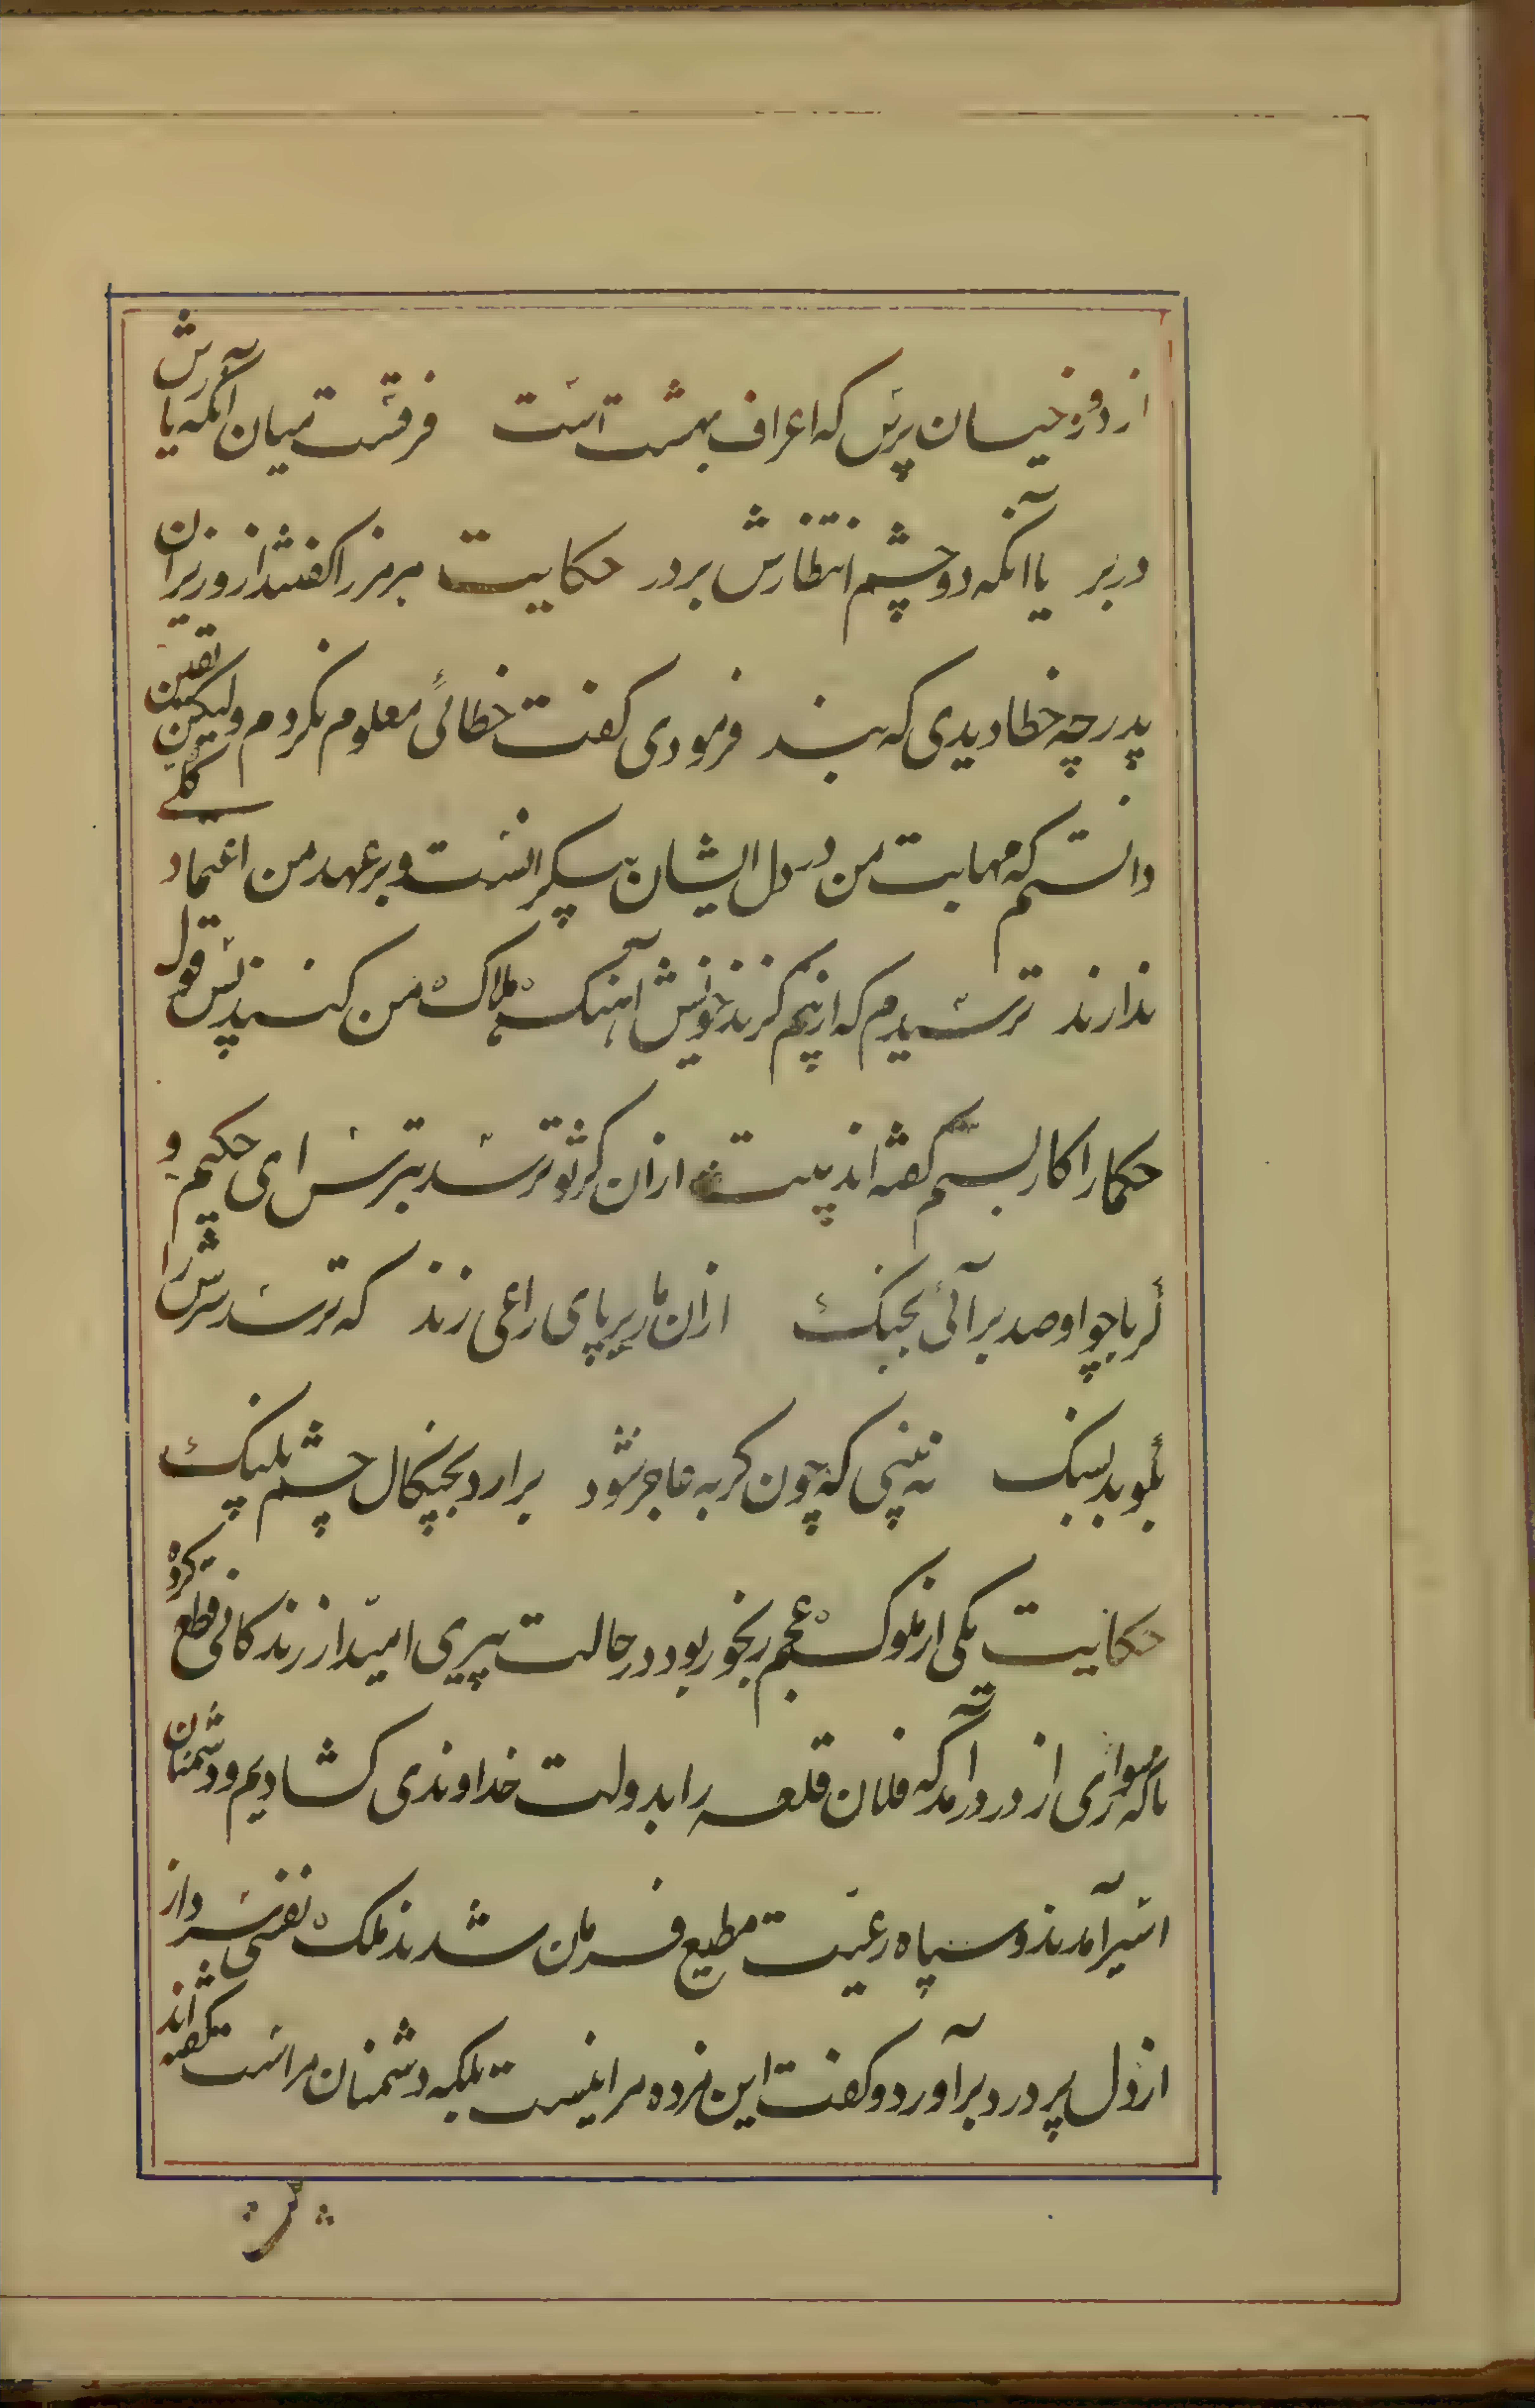 از دوزخیان پرس که اعراف بهشت است فرقست میان آنکه یارش
در بر یا آنکه دو چشم انتظارش بر در حکایت هرمز را گفتند از وزیران
پدر چه خطا دیدی که بند فرمودی گفت خطائی معلوم نکردم ولیکن یقین
دانستم که مهابت من در دل ایشان بیکرانست و بر عهد من اعتماد کلی
ندارند ترسیدم که از بیم گزند خویش آهنگ هلاک من کنند پس قول
حکما را کار بستم که گفته اند بیت ازان کز تو ترسد بترس ای حکیم و
گر با چو او صد برآئی بجنگ ازان مار بر پای راعی زند که ترسد سرش را
بکوبد بسنگ نه بینی که چون گربه عاجز شود برارد بچنگال چشم پلنگ
حکایت یکی از ملوک عجم رنجور بود در حالت پیری امید از زندگانی قطع کرده
که سواری از در درآمد که فلان قلعه را بدولت خداوندی گشادیم و دشمنان
اسیر آمدند و سپاه رعیت مطیع فرمان شدند ملک نفسی سرد از
از دل پر درد برآورد و گفت این مژده مرا نیست بلکه دشمنان مراست گفته اند